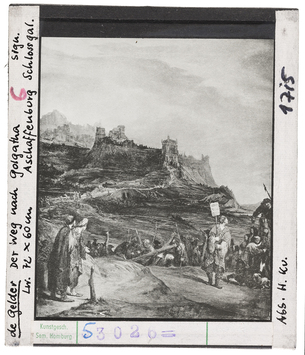 de Gelder Der Weg nach Golgatha 6 sign.
Lw. 72 x 60 cm Aschaffenburg Schlossgal.
1715
Kunstgesch.
Sem. Hamburg
53026=
Abb. H. Kv.